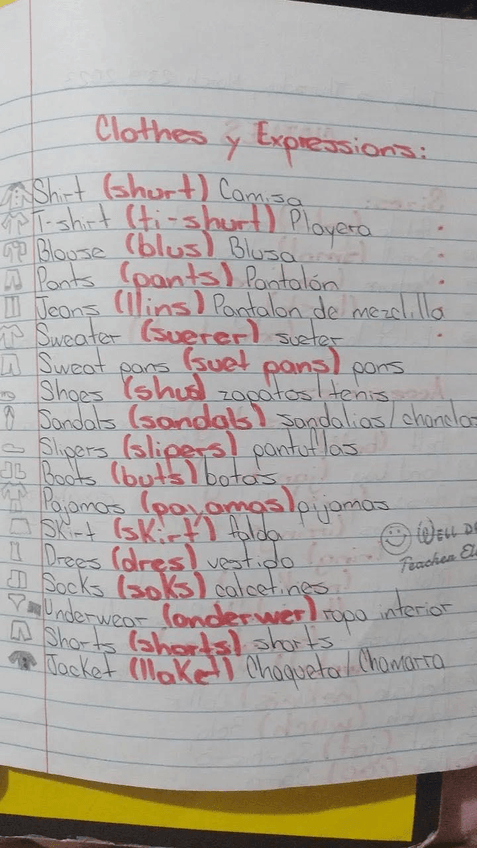 Clothes y Expressions:
Shirt (shurt) Camisa
T-shirt (ti-shurt) Playera
Blouse (blus) Blusa
Pants (pants) Pantalón
Jeans (llins) Pantalon de mezclilla
Sweater (suerer) sueter
Sweat pans (suet pans) pans
Shoes (shud zapatos/tenis
Sandals (sandals) sandalias/chanclas
Slipers (slipers) pantuflas
Boots (buts) botas
Pajamas (payamas) pijamas
Skirt (skirt) falda
WELL
Drees (dres) vestido
Teacher
Socks (soks) calcetines
Underwear (onderwer) ropa interior
Shorts (shorts) shorts
Jacket (llaket) Chaqueta/Chamarra